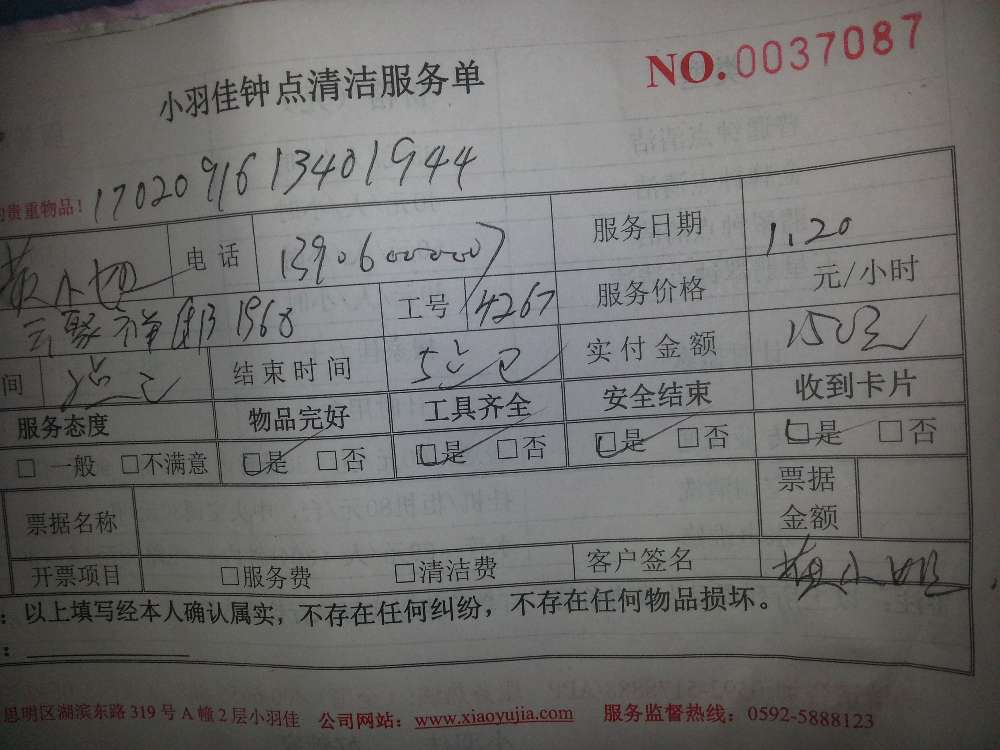 NO.0037087
小羽佳钟点清洁服务单
的贵重物品！1702091613401944
黄小姐 电话 13906000007 服务日期 1.20
1968 工号 4267 服务价格 元/小时
间 结束时间 5点 实付金额 150元
服务态度 物品完好 工具齐全 安全结束 收到卡片
□ 一般 □不满意 □是 □否 □是 □否 □是 □否 □是 □否
票据名称 票据金额
开票项目 □服务费 □清洁费 客户签名 黄小姐
：以上填写经本人确认属实，不存在任何纠纷，不存在任何物品损坏。
：
思明区湖滨东路 319 号 A 幢 2 层小羽佳 公司网站：www.xiaoyujia.com 服务监督热线：0592-5888123